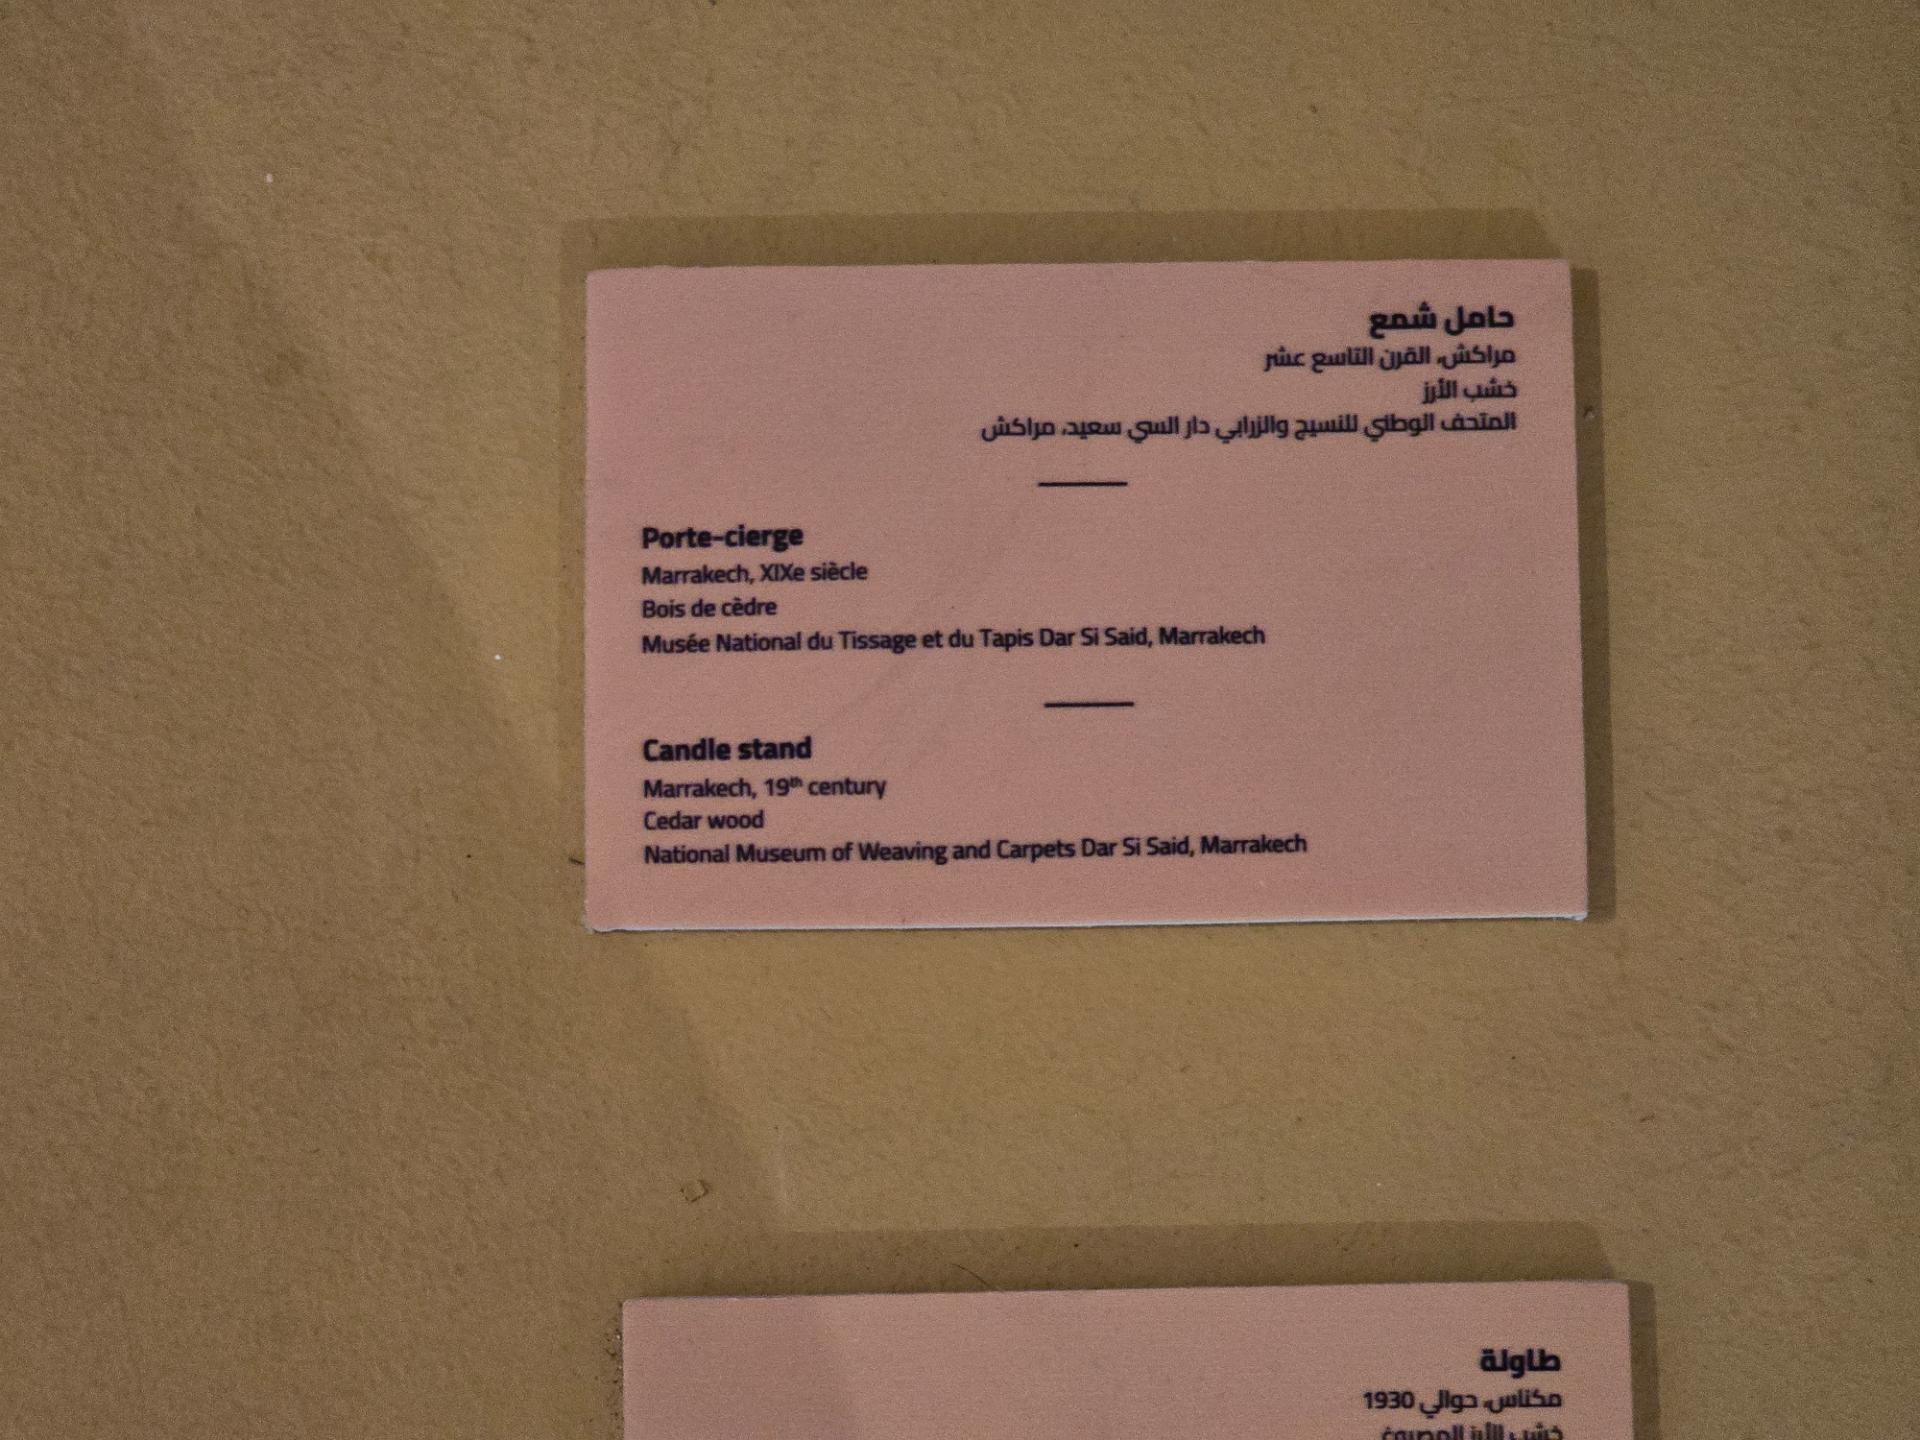 حامل شمع
مراكش، القرن التاسع عشر
خشب الأرز
المتحف الوطني للنسيج والزرابي دار السي سعيد، مراكش
Porte-cierge
Marrakech, XIXe siècle
Bois de cèdre
Musée National du Tissage et du Tapis Dar Si Said, Marrakech
Candle stand
Marrakech, 19th century
Cedar wood
National Museum of Weaving and Carpets Dar Si Said, Marrakech
طاولة
مكناس، حوالي 1930
خشب الأرز المصبوغ